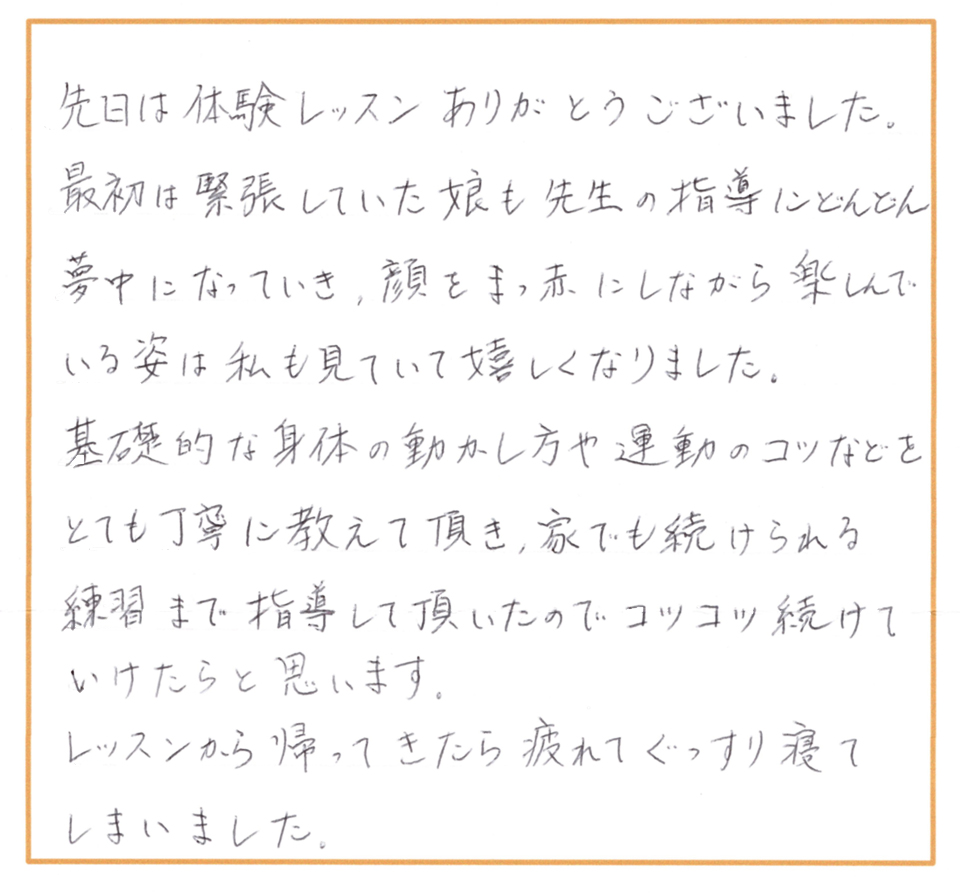 先日は体験レッスンありがとうございました。
最初は緊張していた娘も先生の指導にどんどん
夢中になっていき,顔をまっ赤にしながら楽しんで
いる姿は私も見ていて嬉しくなりました。
基礎的な身体の動かし方や運動のコツなどを
とても丁寧に教えて頂き,家でも続けられる
練習まで指導して頂いたのでコツコツ続けて
いけたらと思います。
レッスンから帰ってきたら疲れてぐっすり寝て
しまいました。